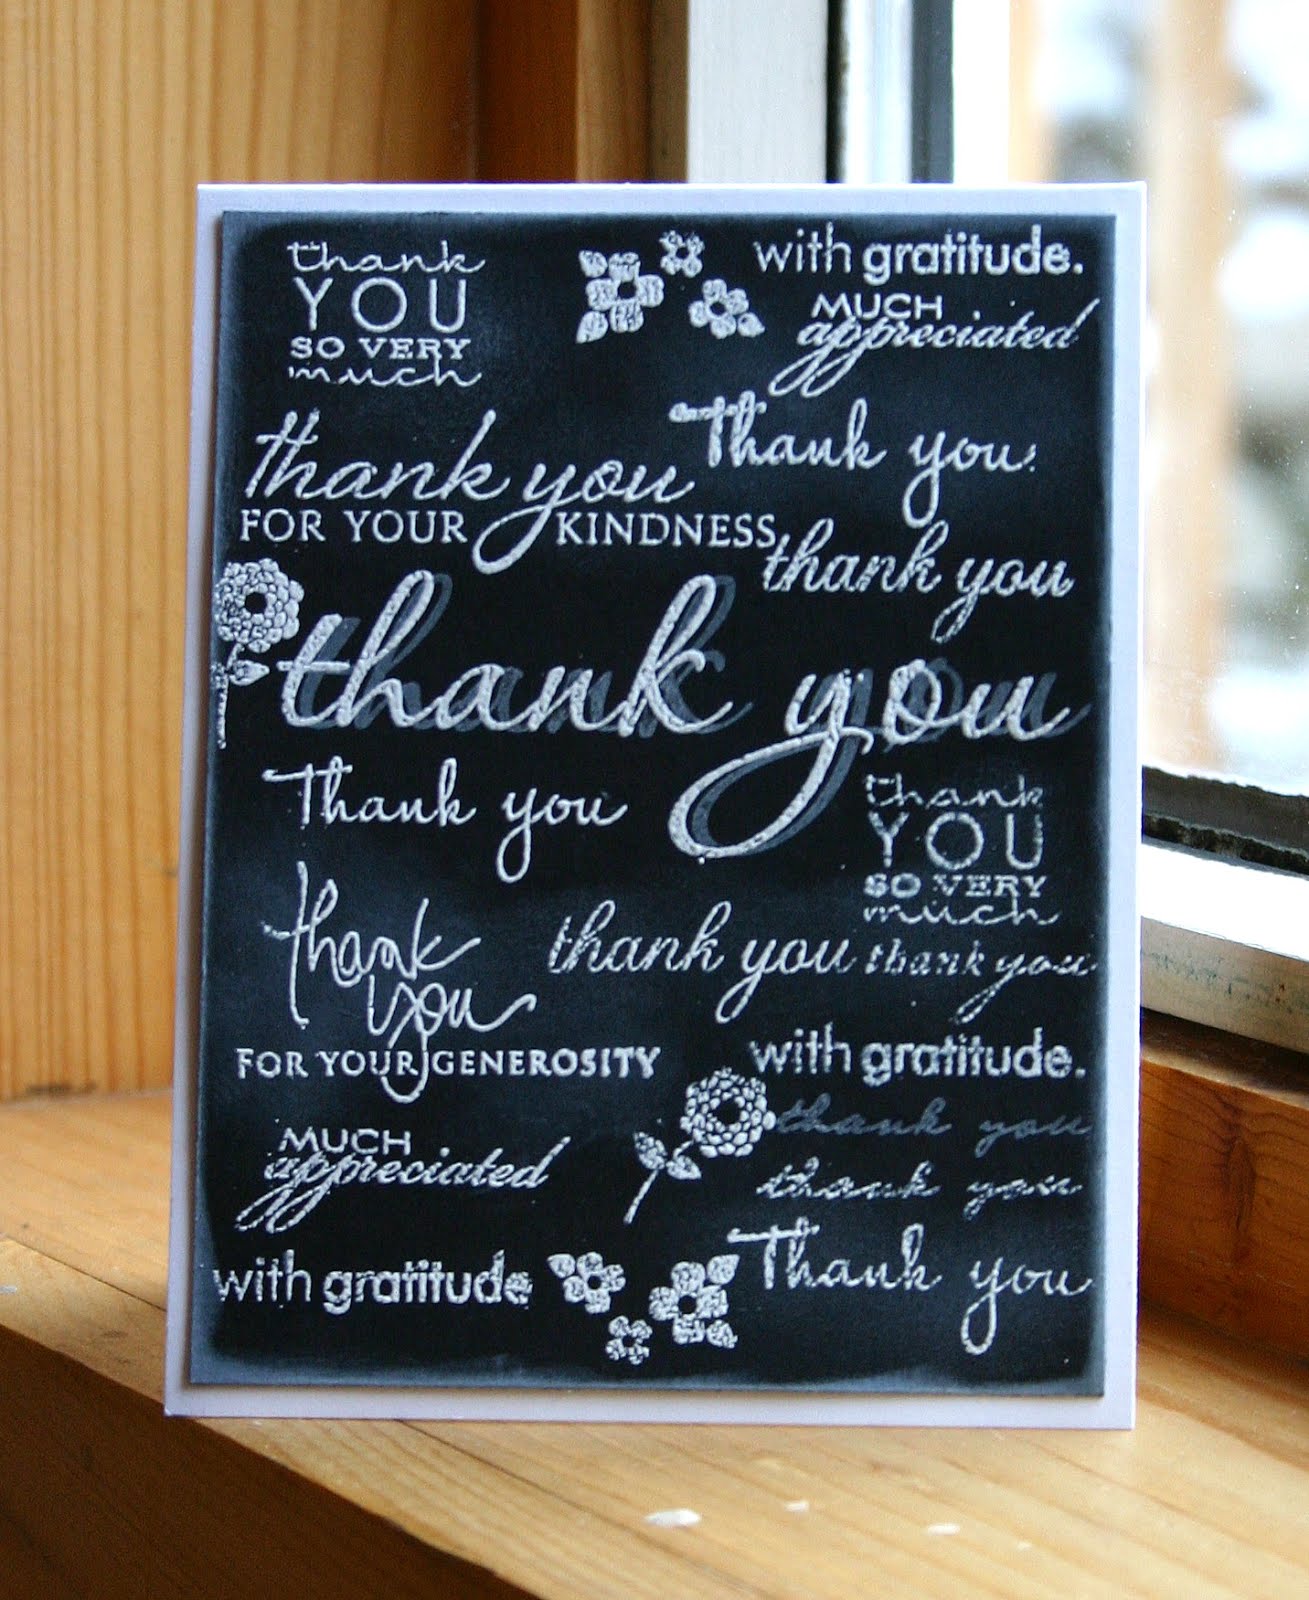 thank
YOU
SO VERY
much
with gratitude.
MUCH
appreciated
thank you
FOR YOUR KINDNESS
Thank you.
thank you
thank you
Thank you
thank
YOU
SO VERY
much
thank
you
FOR YOUR GENEROSITY
thank you
thank you
with gratitude.
thank you
MUCH
appreciated
thank you
Thank you
with gratitude